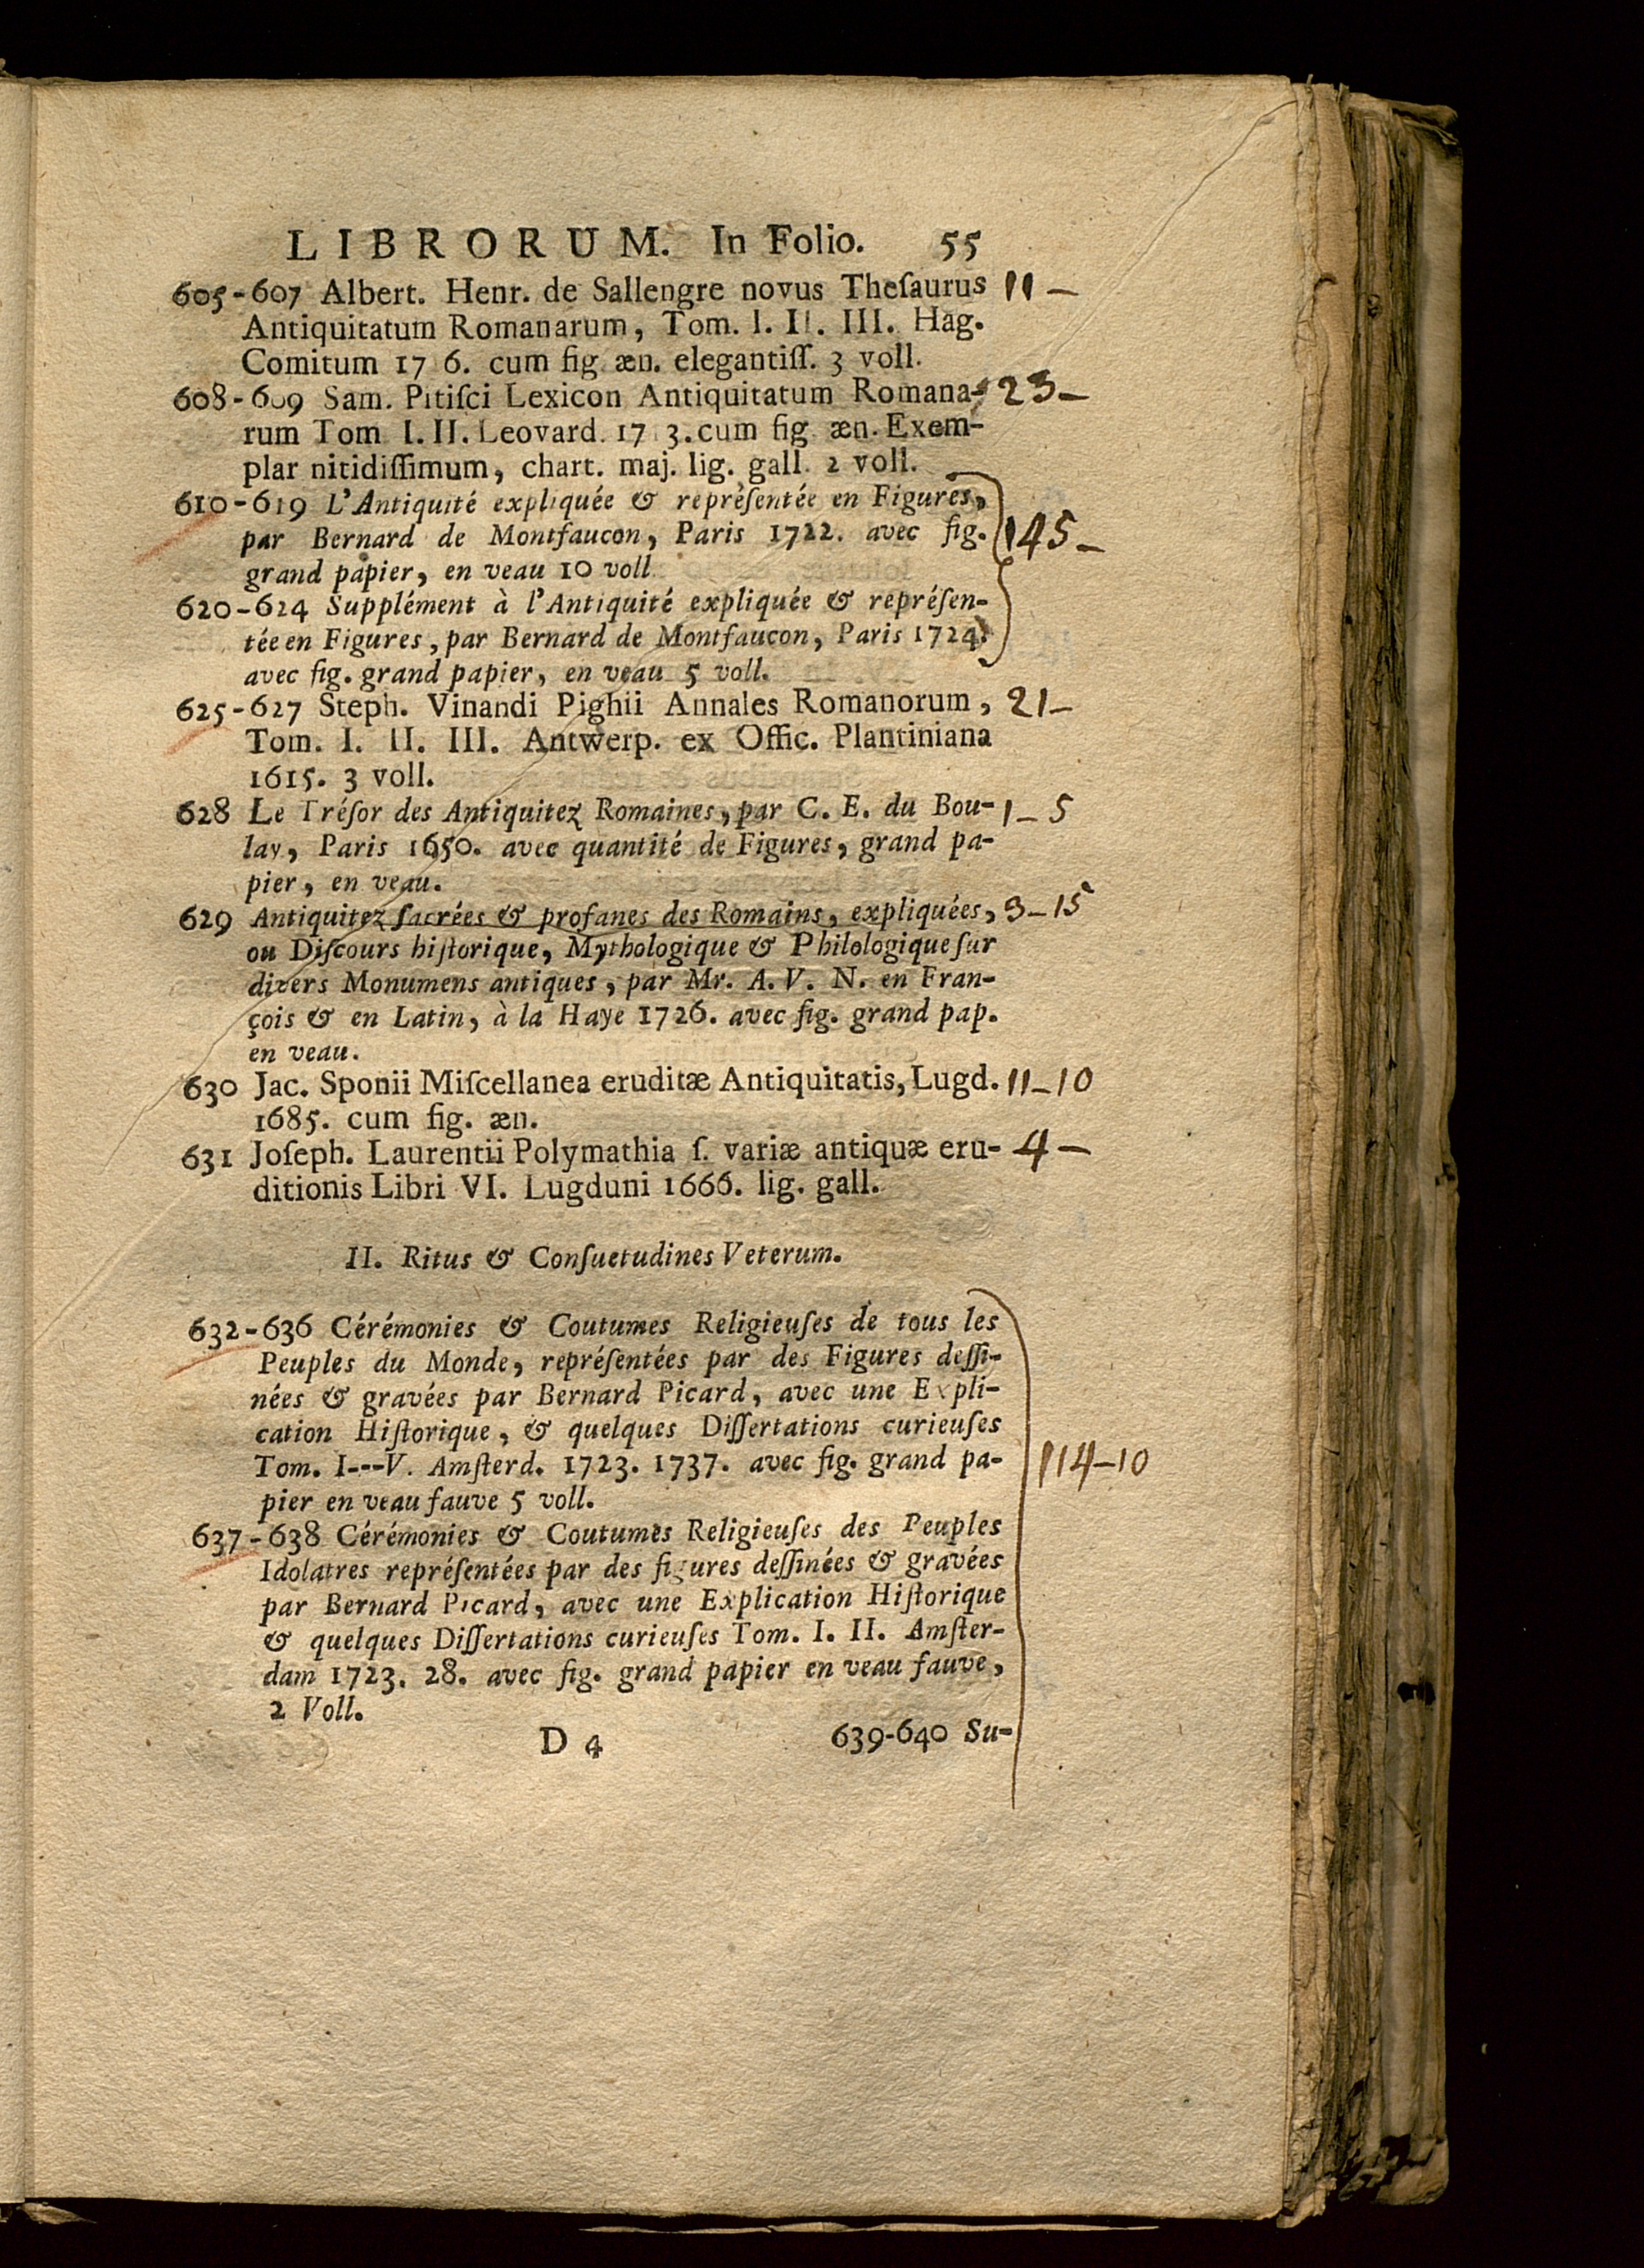 LIBRORUM. In Folio. 55
605-607 Albert. Henr. de Sallengre novus Theſaurus 11 —
Antiquitatum Romanarum, Tom. I. II. III. Hag.
Comitum 17 6. cum fig æn. elegantiſſ. 3 voll.
608-609 Sam. Pitiſci Lexicon Antiquitatum Romana- 23 —
rum Tom I. II. Leovard. 17 3. cum fig æn. Exem-
plar nitidiſſimum, chart. maj. lig. gall. 2 voll.
610-619 L'Antiquité expliquée & repréſentée en Figures,
par Bernard de Montfaucon, Paris 1722. avec fig. 145 —
grand papier, en veau 10 voll
620-624 Supplément à l'Antiquité expliquée & repréſen-
tée en Figures, par Bernard de Montfaucon, Paris 1724.
avec fig. grand papier, en veau 5 voll.
625-627 Steph. Vinandi Pighii Annales Romanorum, 21 —
Tom. I. II. III. Antwerp. ex Offic. Plantiniana
1615. 3 voll.
628 Le Tréſor des Antiquitez Romaines, par C. E. du Bou- 1 — 5
lay, Paris 1650. avec quantité de Figures, grand pa-
pier, en veau.
629 Antiquitez ſacrées & profanes des Romains, expliquées, 3 — 15
ou Diſcours hiſtorique, Mythologique & Philologique ſur
divers Monumens antiques, par Mr. A. V. N. en Fran-
çois & en Latin, à la Haye 1726. avec fig. grand pap.
en veau.
630 Jac. Sponii Miſcellanea eruditæ Antiquitatis, Lugd. 11 — 10
1685. cum fig. æn.
631 Joſeph. Laurentii Polymathia ſ. variæ antiquæ eru- 4 —
ditionis Libri VI. Lugduni 1666. lig. gall.
II. Ritus & Conſuetudines Veterum.
632-636 Cérémonies & Coutumes Religieuſes de tous les
Peuples du Monde, repréſentées par des Figures deſſi-
nées & gravées par Bernard Picard, avec une Expli-
cation Hiſtorique, & quelques Diſſertations curieuſes
Tom. I---V. Amſterd. 1723. 1737. avec fig. grand pa- 114 — 10
pier en veau fauve 5 voll.
637-638 Cérémonies & Coutumes Religieuſes des Peuples
Idolatres repréſentées par des figures deſſinées & gravées
par Bernard Picard, avec une Explication Hiſtorique
& quelques Diſſertations curieuſes Tom. I. II. Amſter-
dam 1723. 28. avec fig. grand papier en veau fauve,
2 Voll.
D 4 639-640 Su-